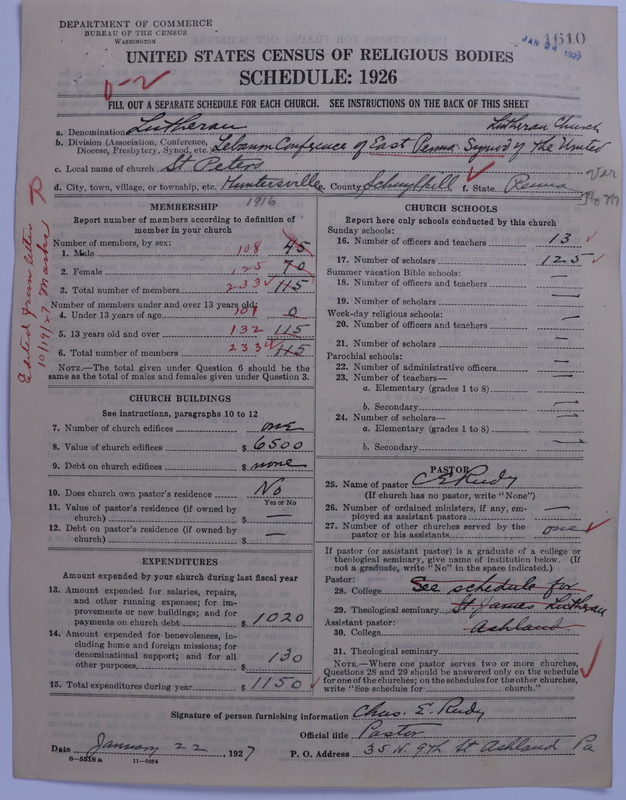 DEPARTMENT OF COMMERCE
BUREAU OF THE CENSUS
WASHINGTON
1610
JAN 31 1927
UNITED STATES CENSUS OF RELIGIOUS BODIES
SCHEDULE: 1926
0-2
FILL OUT A SEPARATE SCHEDULE FOR EACH CHURCH. SEE INSTRUCTIONS ON THE BACK OF THIS SHEET
a. Denomination Lutheran
Lutheran Church
b. Division (Association, Conference, Diocese, Presbytery, Synod, etc. Lebanon Conference of East Penna. Synod of The United
c. Local name of church St Peters
d. City, town, village, or township, etc. Huntersville e. County Schuylkill f. State Penna
Edited from letter
10/19/27
MEMBERSHIP 1916
Report number of members according to definition of member in your church
Number of members, by sex:
1. Male 108 45
2. Female 125 70
3. Total number of members 233 115
Number of members under and over 13 years old:
4. Under 13 years of age 101 0
5. 13 years old and over 132 115
6. Total number of members 233 115
NOTE.—The total given under Question 6 should be the same as the total of males and females given under Question 3.
CHURCH BUILDINGS
See instructions, paragraphs 10 to 12
7. Number of church edifices one
8. Value of church edifices $ 6500
9. Debt on church edifices $ none
10. Does church own pastor's residence No
Yes or No
11. Value of pastor's residence (if owned by church) $ —
12. Debt on pastor's residence (if owned by church) $ —
EXPENDITURES
Amount expended by your church during last fiscal year
13. Amount expended for salaries, repairs, and other running expenses; for improvements or new buildings; and for payments on church debt $ 1020
14. Amount expended for benevolences, including home and foreign missions; for denominational support; and for all other purposes $ 130
15. Total expenditures during year $ 1150
CHURCH SCHOOLS
Report here only schools conducted by this church
Sunday schools:
16. Number of officers and teachers 13
17. Number of scholars 125
Summer vacation Bible schools:
18. Number of officers and teachers —
19. Number of scholars —
Week-day religious schools:
20. Number of officers and teachers —
21. Number of scholars —
Parochial schools:
22. Number of administrative officers —
23. Number of teachers—
a. Elementary (grades 1 to 8) —
b. Secondary —
24. Number of scholars—
a. Elementary (grades 1 to 8) —
b. Secondary —
PASTOR
25. Name of pastor C E Rudy
(If church has no pastor, write "None")
26. Number of ordained ministers, if any, employed as assistant pastors —
27. Number of other churches served by the pastor or his assistants one
If pastor (or assistant pastor) is a graduate of a college or theological seminary, give name of institution below. (If not a graduate, write "No" in the space indicated.)
Pastor:
28. College See schedule for
29. Theological seminary St. James Lutheran
Assistant pastor: Ashland
30. College
31. Theological seminary
NOTE.—Where one pastor serves two or more churches, Questions 28 and 29 should be answered only on the schedule for one of the churches; on the schedules for the other churches, write "See schedule for ______ church."
Signature of person furnishing information Chas. E. Rudy
Official title Pastor
Date January 22, 1927
P. O. Address 35 N. 9th St Ashland Pa
8—5518 a 11—9054